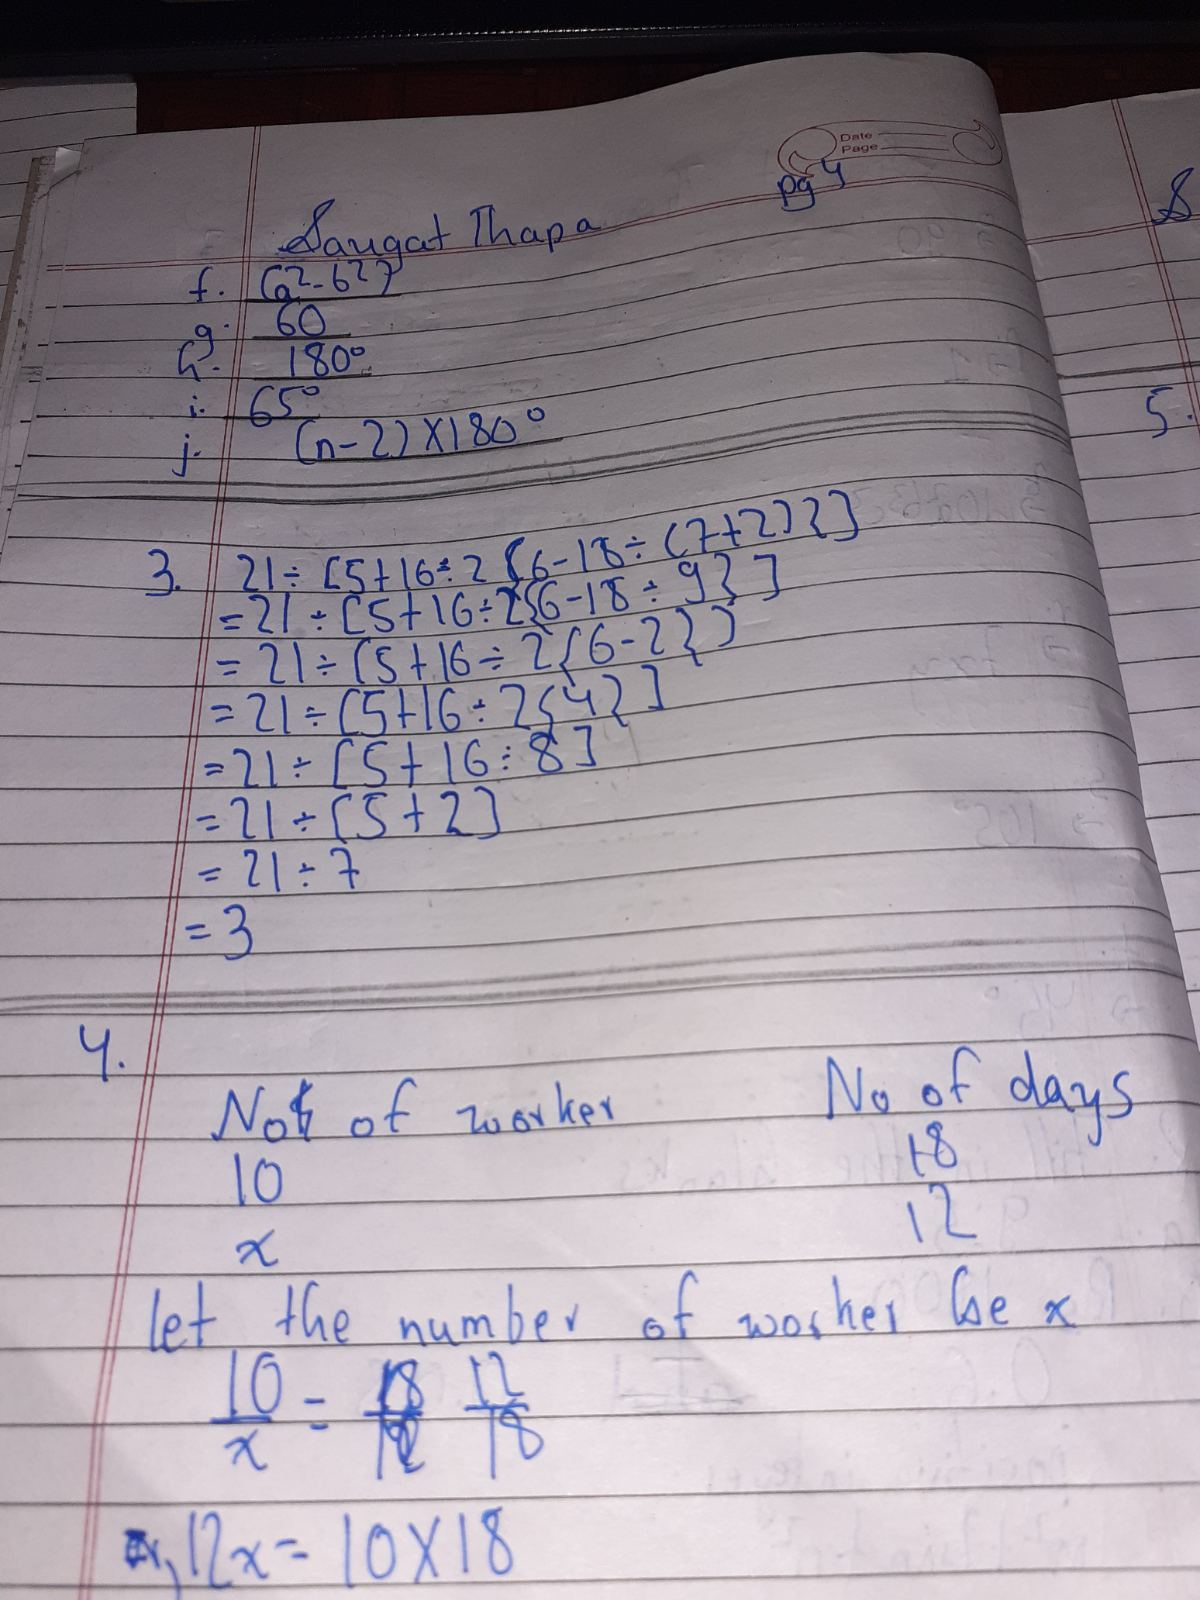 Date
Page
pg 4
Saugat Thapa
f. (a²-b²)
g. 60
h. 180°
i. 65°
j. (n-2)X180°
3. 21÷[5+16÷2{6-18÷(7+2)}]
=21÷[5+16÷2{6-18÷9}]
=21÷[5+16÷2{6-2}]
=21÷[5+16÷2{4}]
=21÷[5+16÷8]
=21÷[5+2]
=21÷7
=3
4.
No of worker No of days
10 18
x 12
let the number of worker be x
10/x = 12/18
12x=10X18
S
5.